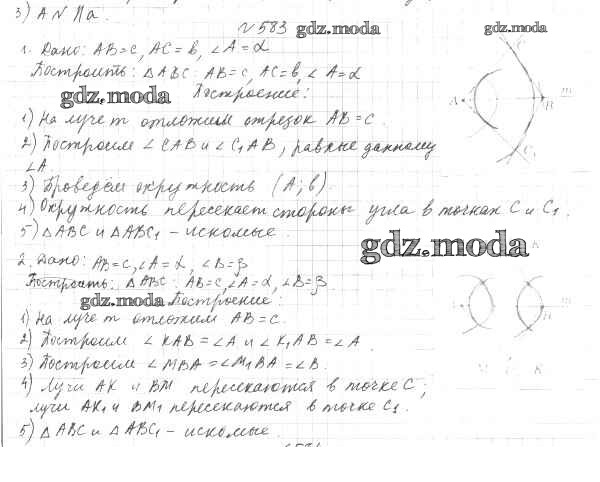 3) AN ∥ a.
№583 gdz.moda gdz.moda
1. Дано: AB=c, AC=b, ∠A=α
Построить: △ABC: AB=c, AC=b, ∠A=α
gdz.moda Построение:
1) На луче m отложим отрезок AB=c.
2) Построим ∠CAB и ∠C₁AB, равные данному
∠A.
3) Проведём окружность (A; b).
4) Окружность пересекает стороны угла в точках C и C₁.
5) △ABC и △ABC₁ - искомые.
gdz.moda
2. Дано: AB=c, ∠A=α, ∠B=β
Построить: △ABC: AB=c, ∠A=α, ∠B=β
gdz.moda Построение:
1) На луче m отложим AB=c.
2) Построим ∠KAB=∠A и ∠K₁AB=∠A.
3) Построим ∠MBA=∠M₁BA=∠B.
4) Лучи AK и BM пересекаются в точке C;
лучи AK₁ и BM₁ пересекаются в точке C₁.
5) △ABC и △ABC₁ - искомые.
C
A
B
m
C₁
K
m
K